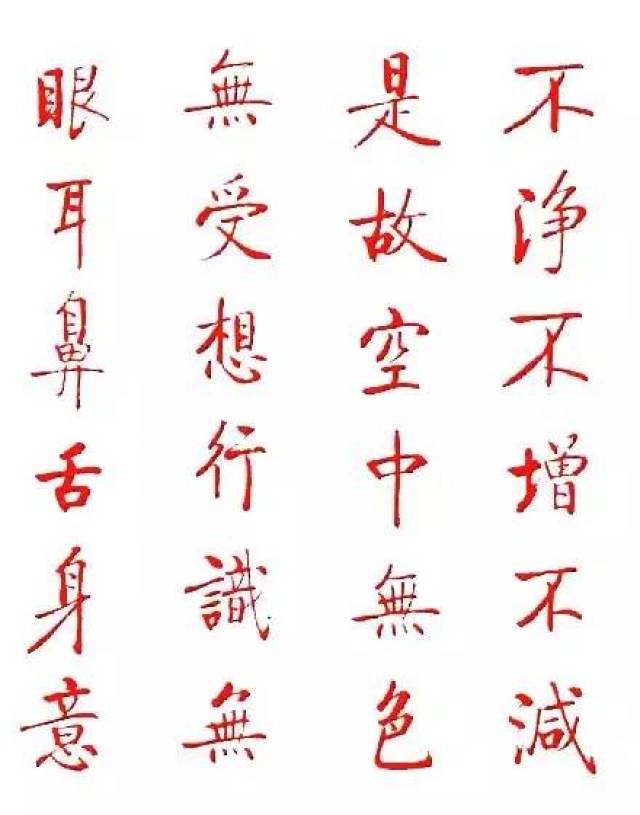 不净不增不減
是故空中無色
無受想行識無
眼耳鼻舌身意